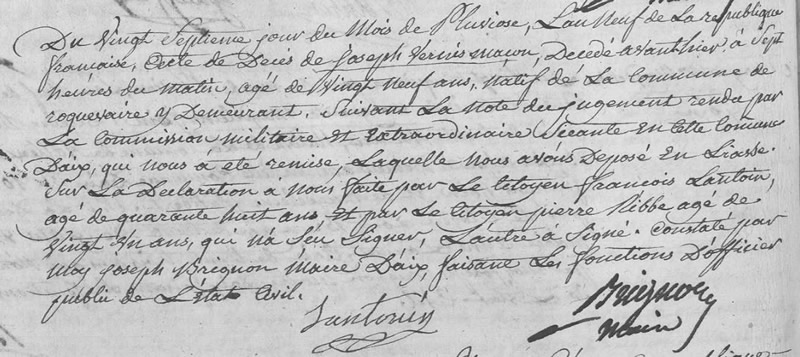 Du Vingt Septieme jour du Mois de Pluviose, L'an Neuf de La republique
francaise, Acte de Decés de joseph Vernis macon, Decedé avanthier à Sept
heures du matin, agé de Vingt Neuf ans, natif de La Commune de
roquevaire y Demeurant. Suivant La Note du jugement rendu par
La Commission militaire Et Extraordinaire Séeante En Cette Comune
D'aix, qui nous a eté remise, Laquelle nous avons Deposé En Liasse.
Sur La Declaration à nous faite par Le Citoyen francois Lantoin,
agé de quarante huit ans Et par Le Citoyen pierre Ribbe agé de
Vingt Un ans, qui n'a Seu Signer, L'autre à Signé. Constaté par
moy joseph Brignon Maire D'aix, faisant Les fonctions D'officier
public de L'Etat Civil.
Lantouin Brignon
maire